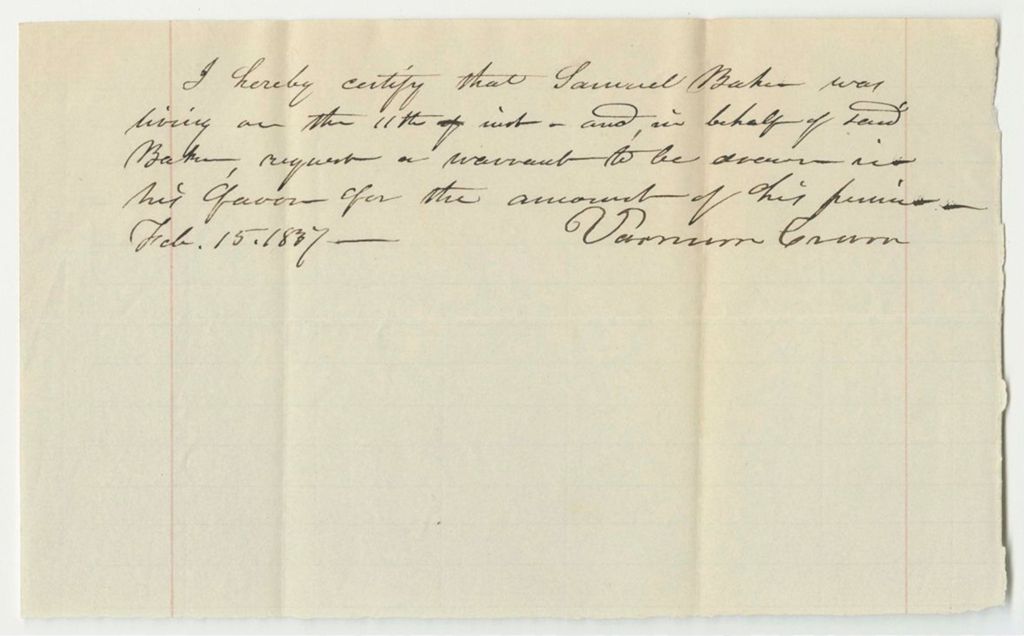 I hereby certify that Samuel Baker was
living on the 11th of inst - and, in behalf of said
Baker, request a warrant to be drawn in
his favor for the amount of his pension -
Feb. 15. 1837 -
Varnum Cram